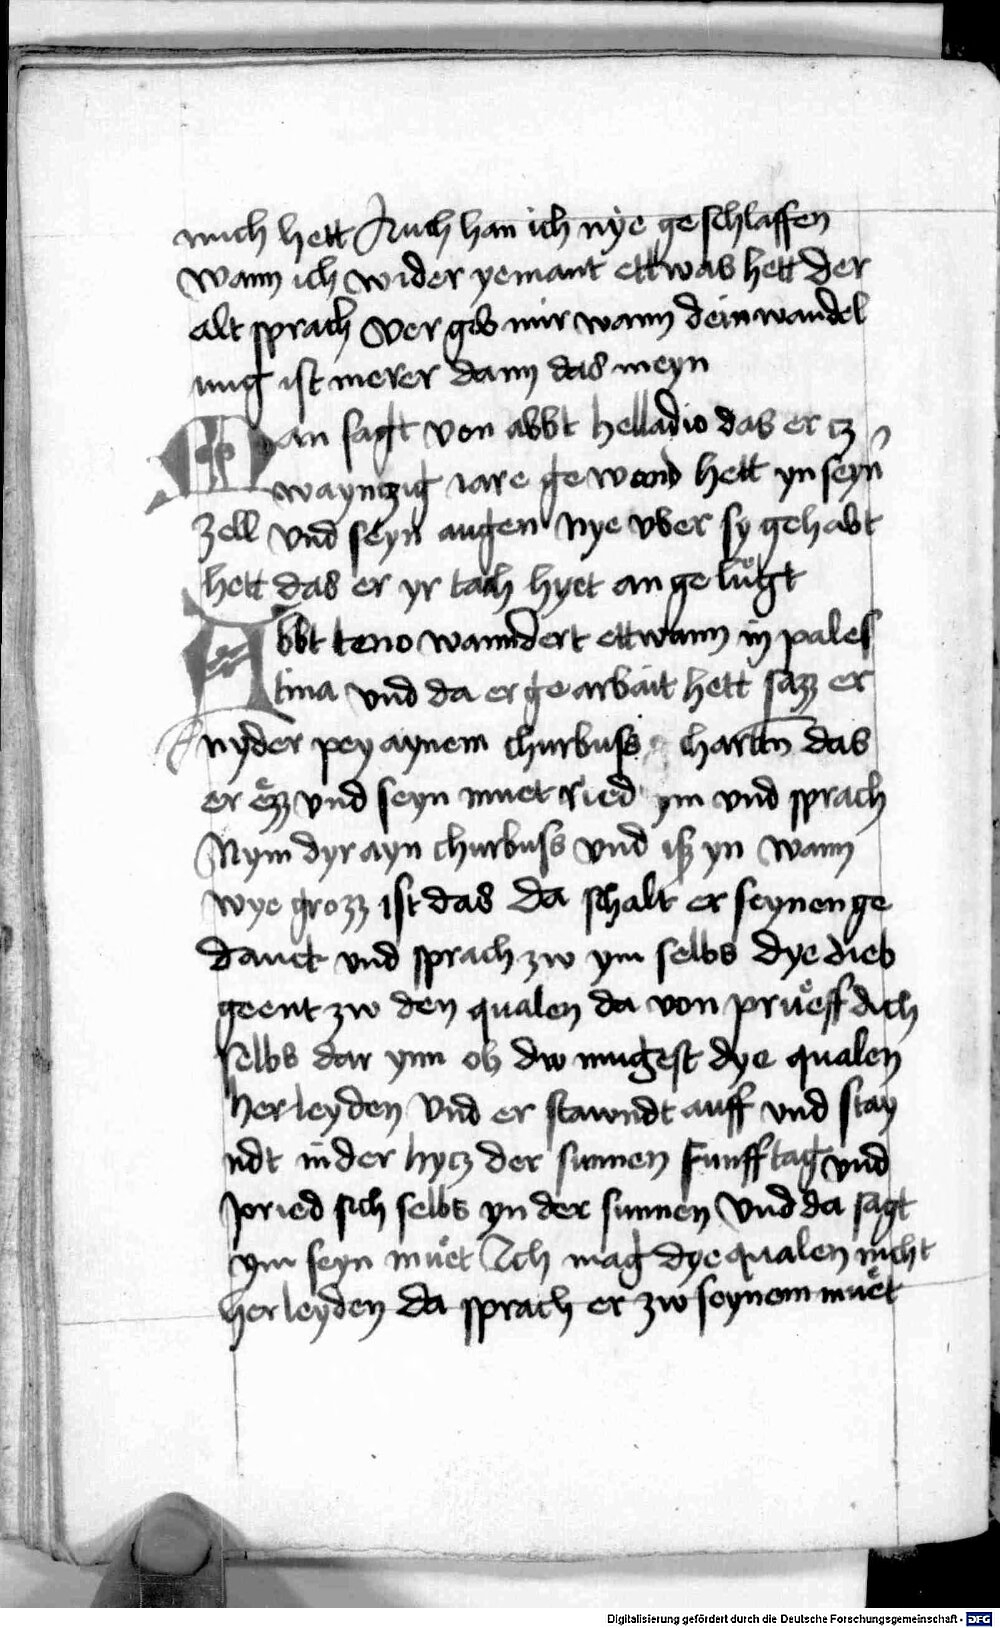 mich hett Auch han ich nye geschlaffen
wann ich wider yemant ettwas hett der
alt sprach Ver gib mir wann dein wandel
nug ist merer dann das meyn
Man sagt von abbt helladio das er cz
wayntzig iare ge wond hett yn seyn
zell vnd seyn augen Nye vber sy gehabt
hett das er yr tach hyet an ge lůgt
Abbt teno wanndert ettwann in pales
tina vnd da er ge arbait hett sazz er
nyder pey aynem churbuss das
er ezz vnd seyn muet Ried ym vnd sprach
Nym dyr ayn churbuss vnd iss yn wann
wye grozz ist das Da schalt er seynen ge
danck vnd sprach zw ym selbs Dye dieb
geent zw den qualen da von průeff dich
selbs dar ynn ob dw mugest dye qualen
herleyden Vnd er stawndt auff vnd stay
ndt in der hycz der sunnen Funff tag vnd
pried sich selbs yn der sunnen Vnd da sagt
ym seyn můet Ich mag dye qualen nicht
herleyden da sprach er zw seynem muet
Digitalisierung gefördert durch die Deutsche Forschungsgemeinschaft - DFG